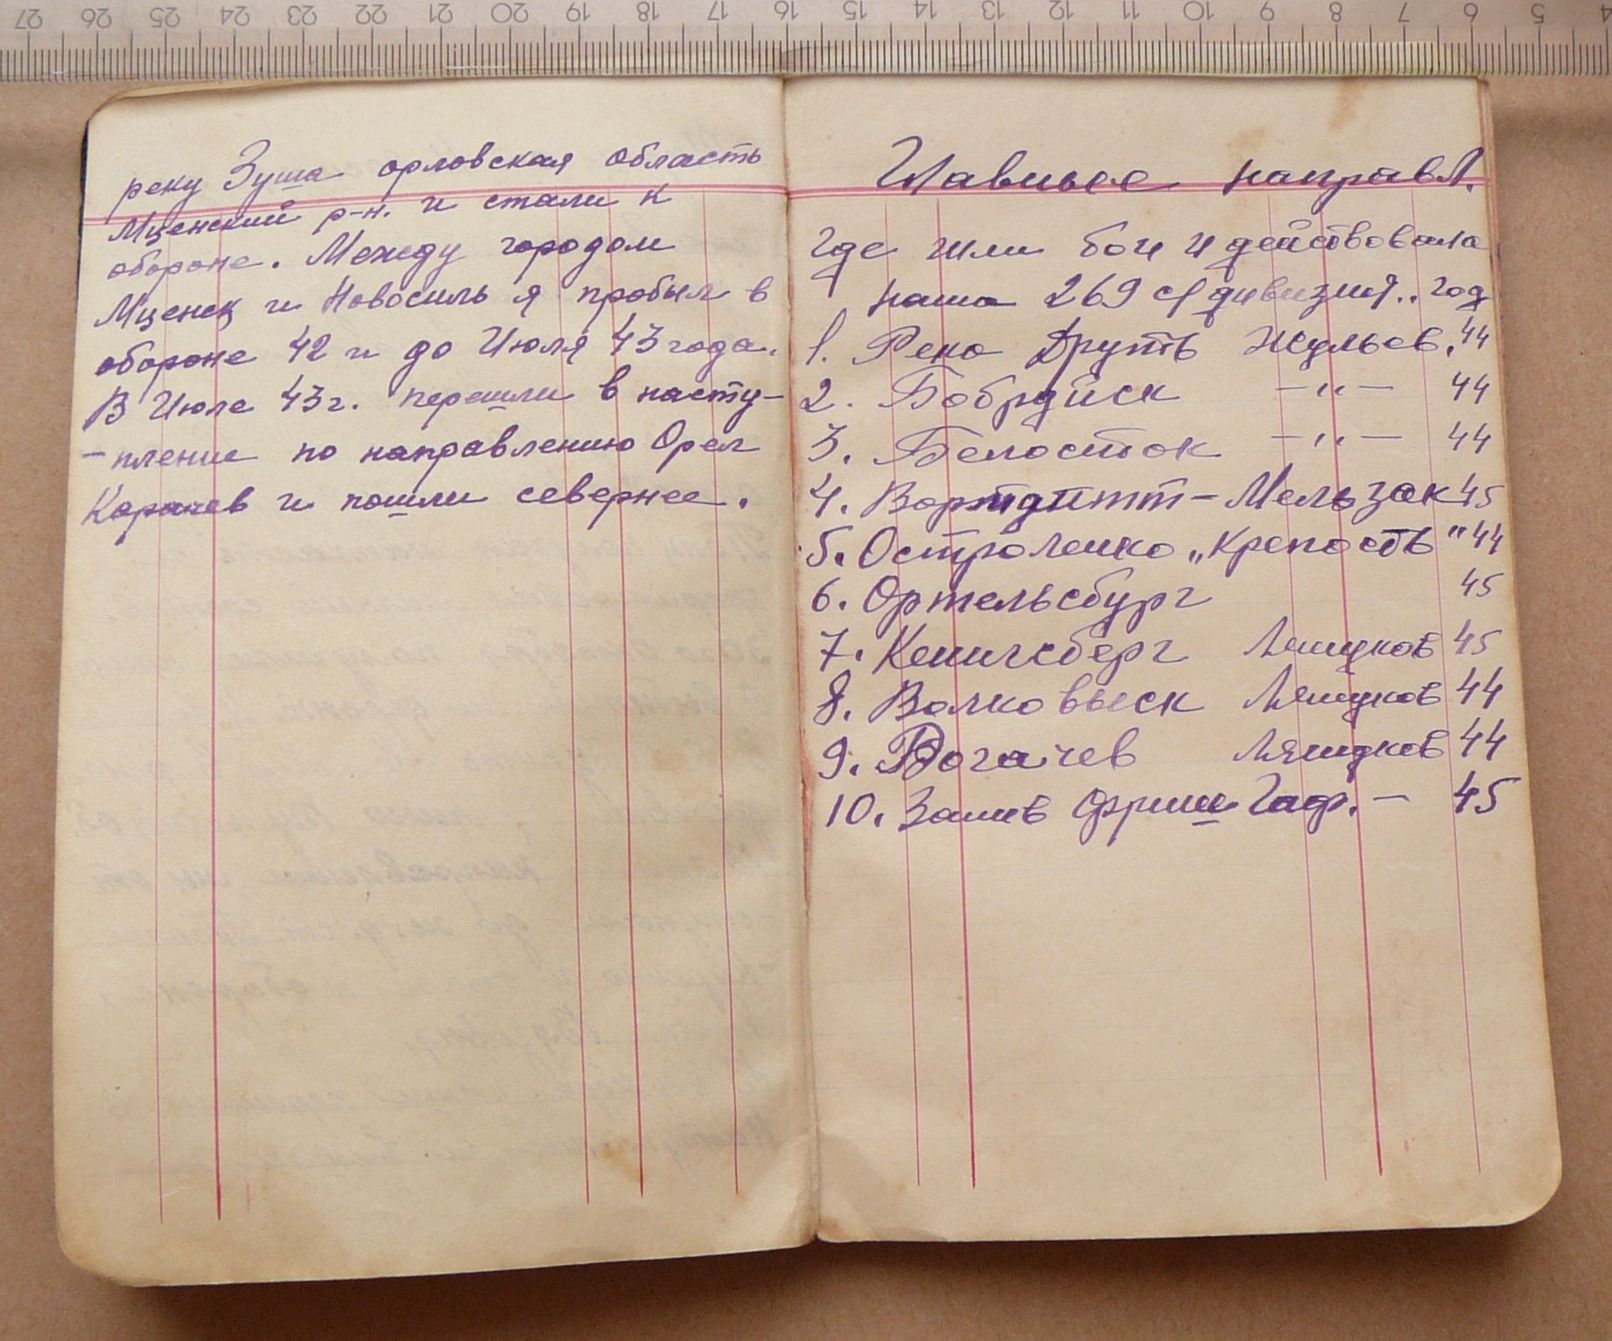 27 26 25 24 23 22 21 20 19 18 17 16 15 14 13 12 11 10 9 8 7 6 5 4
реку Зуша орловская область
Мценский р-н. и стали к
обороне. Между городом
Мценск и Новосиль я пробыл в
обороне 42 и до Июля 43 года.
В Июле 43 г. перешли в насту-
-пление по направлению Орел
Карачев и пошли севернее.
Главное направл.
где шли бои и действовала
наша 269 с/дивизия.. год
1. Река Друть 44
2. Бобруйск —„— 44
3. Белосток —„— 44
4. Вормдитт – Мельзак 45
5. Остроленко „Крепость" 44
6. Ортельсбург 45
7. Кенигсберг 45
8. Волковыск 44
9. Рогачев 44
10. Залив Фриш Гаф. — 45